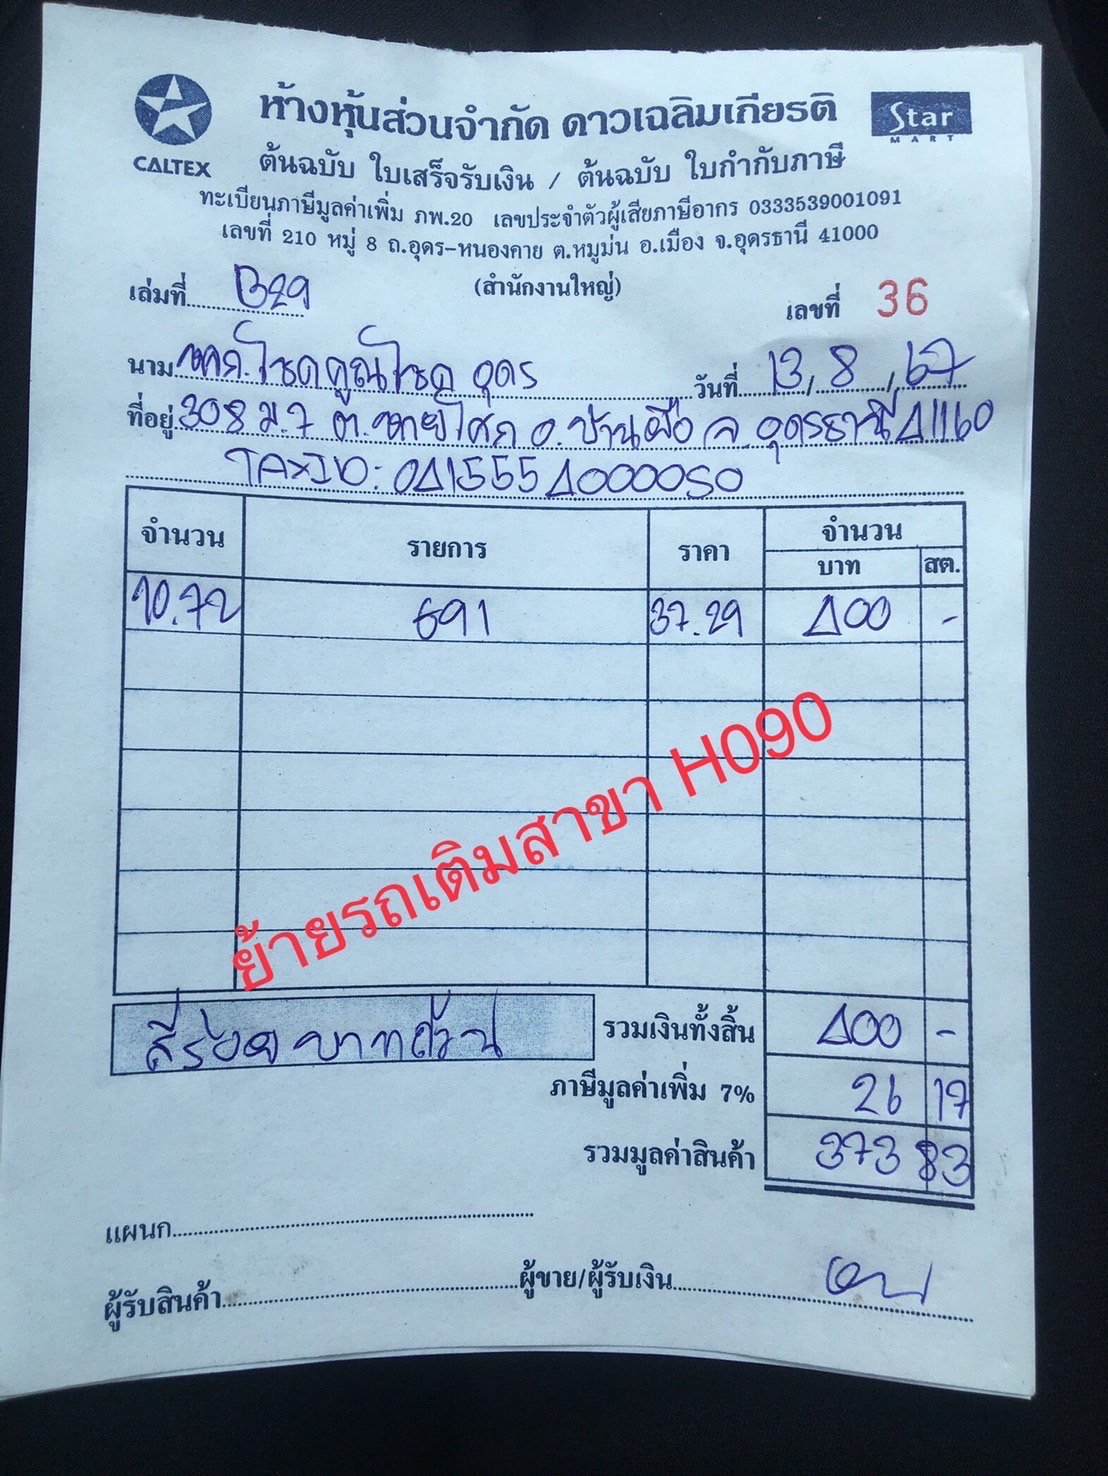 CALTEX
ห้างหุ้นส่วนจำกัด ดาวเฉลิมเกียรติ
Star
MART
ต้นฉบับ ใบเสร็จรับเงิน / ต้นฉบับ ใบกำกับภาษี
ทะเบียนภาษีมูลค่าเพิ่ม ภพ.20 เลขประจำตัวผู้เสียภาษีอากร 0333539001091
เลขที่ 210 หมู่ 8 ถ.อุดร-หนองคาย ต.หมูม่น อ.เมือง จ.อุดรธานี 41000
(สำนักงานใหญ่)
เล่มที่ B29
เลขที่ 36
นาม หจก.โชคคูณโชค อุดร วันที่ 13/8/67
ที่อยู่ 308 ม.7 ต. อ.บ้านผือ จ.อุดรธานี 41160
TAXID: 0415554000050
จำนวน รายการ ราคา จำนวน
บาท สต.
10.72 G91 37.29 400 -
ย้ายรถเติมสาขา H090
สี่ร้อยบาทถ้วน รวมเงินทั้งสิ้น 400 -
ภาษีมูลค่าเพิ่ม 7% 26 17
รวมมูลค่าสินค้า 373 83
แผนก
ผู้รับสินค้า ผู้ขาย/ผู้รับเงิน